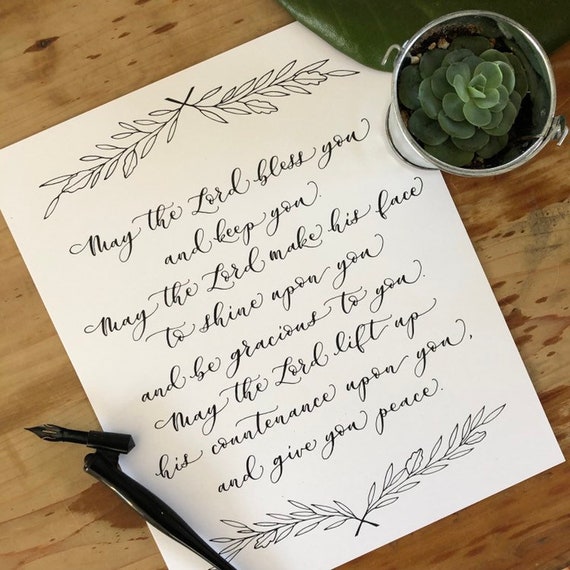 May the Lord bless you
and keep you.
May the Lord make his face
to shine upon you
and be gracious to you.
May the Lord lift up
his countenance upon you,
and give you peace.